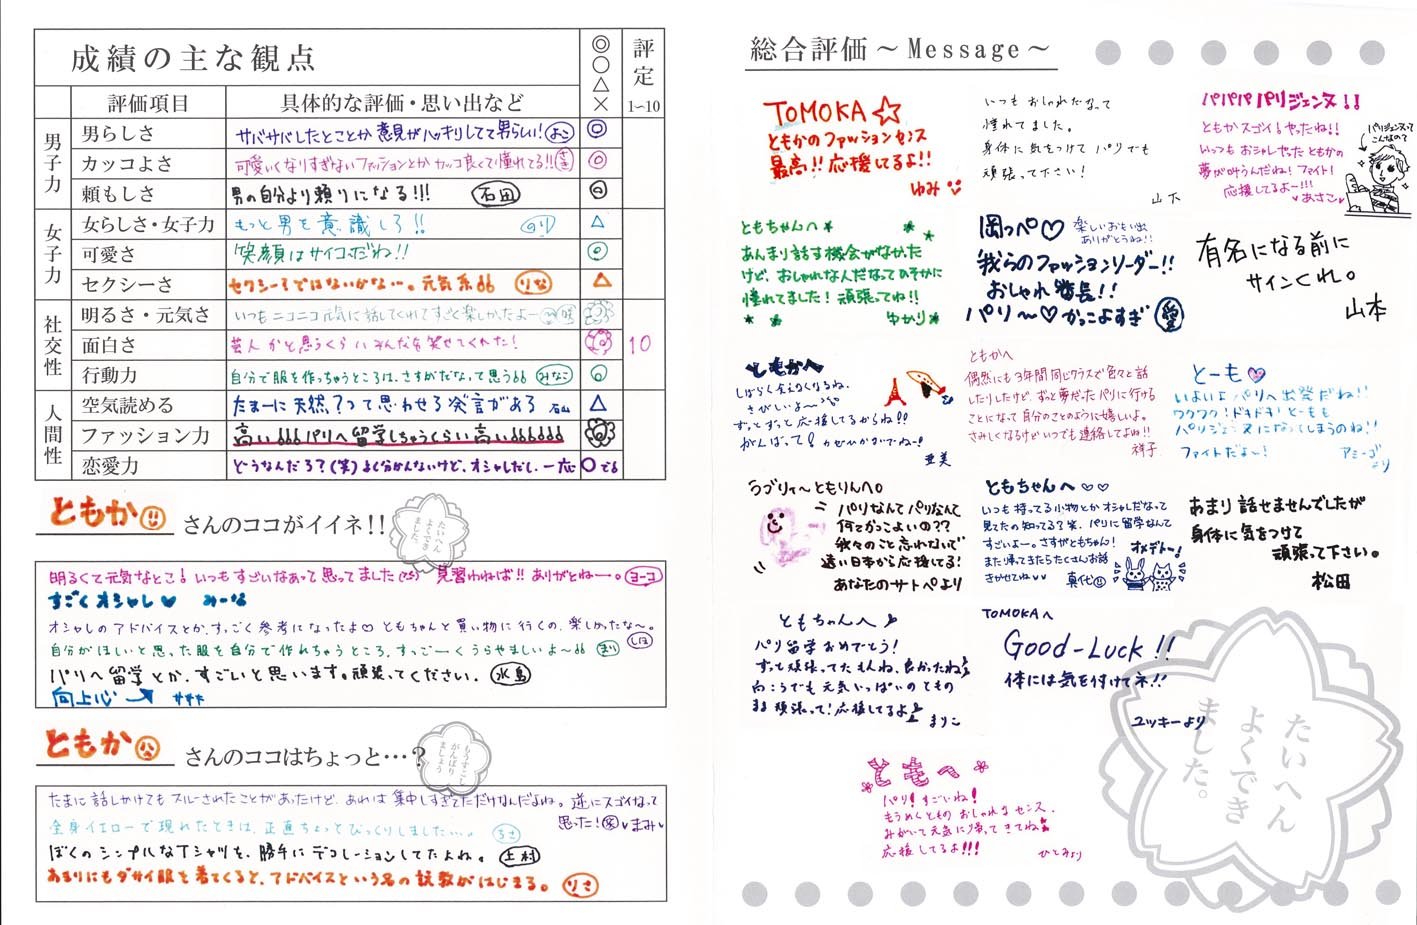 成績の主な観点
◎○△×
評定
1〜10
評価項目 具体的な評価・思い出など
男子力
男らしさ サバサバしたとことか意見がハッキリしてて男らしい! よこ ◎
カッコよさ 可愛いくなりすぎないファッションとかカッコ良くて憧れてる!! ◎
頼もしさ 男の自分より頼りになる!!! 石田 ◎
女子力
女らしさ・女子力 もっと男を意識しろ!! のり △
可愛さ 笑顔はサイコーだね!! ◎
セクシーさ セクシーそではないかな…。元気系 りな △
社交性
明るさ・元気さ いつもニコニコ元気に話してくれてすごく楽しかったよー
面白さ 芸人かと思うくらいみんなを笑せてくれた!
行動力 自分で服を作っちゃうところは、さすがだなって思う みなこ ◎
10
人間性
空気読める たまーに天然?って思わせる発言がある 石山 △
ファッション力 高い パリへ留学しちゃうくらい高い
恋愛力 どうなんだろ?(笑)よく分かんないけど、オシャレだし、一応 ○でる
ともか さんのココがイイネ!!
たいへんよくできました。
明るくて元気なとこ! いつもすごいなあって思ってました 見習わねば!! ありがとねー。 ヨーコ
すごくオシャレ♥ みーな
オシャレのアドバイスとか、すっごく参考になったよ♡ ともちゃんと買い物に行くの、楽しかったな〜。 しほ
自分がほしいと思った服を自分で作れちゃうところ、すっごーくうらやましいよ〜 まり
パリへ留学とか、すごいと思います。頑張ってください。 水島
向上心 サキ
ともか さんのココはちょっと…?
もうすこしがんばりましょう
たまに話しかけてもスルーされたことがあったけど、あれは集中しすぎてただけなんだよね。逆にスゴイなって
思った!(笑) ♥まみ♥
全身イエローで現れたときは、正直ちょっとびっくりしました…。 るさ
ぼくのシンプルなTシャツを、勝手にデコレーションしてたよね。 上村
あまりにもダサイ服を着てくると、アドバイスという名の説教がはじまる。 りさ
総合評価〜Message〜
TOMOKA☆
ともかのファッションセンス
最高!! 応援してるよ!!
ゆみ
いつもおしゃれだなって
憧れてました。
身体に気をつけてパリでも
頑張って下さい!
山本
パパパパリジェンヌ!!
ともかスゴイ!やったね!!
いっつもおシャレだったともかの
夢が叶うんだね! ファイト!
応援してるよ〜!!!
♥あさこ♥
パリジェンヌってこんなの?
ともちゃんへ
あんまり話す機会がなかった
けど、おしゃれなんだなってひそかに
憧れてました! 頑張ってね!!
ゆかり
岡っぺ♡ 楽しいおもい出ありがとうね!!
我らのファッションリーダー!!
おしゃれ番長!!
パリ〜♡かっこよすぎ 望
有名になる前に
サインくれ。
山本
ともかへ
しばらく会えなくなるね、
さびしいよ〜
ずっとずっと応援してるからね!!
がんばって! かぜひかないでねー!
亜美
ともかへ
偶然にも3年間同じクラスで色々と話
したりしたけど、ずっと夢だったパリに行ける
ことになって自分のことのように嬉しいよ。
さみしくなるけどいつでも連絡してよね!!
祥子
とーも♥
いよいよパリへ出発だね!!
ワクワク! ドキドキ! とーもも
パリジェンヌになってしまうのね!!
ファイトだよー! アミーゴより
ラブリィ〜ともりんへ。
パリなんてパリなんて
何てかっこよいの??
我々のこと忘れないで
遠い日本から応援してる!
あなたのサトペより
ともちゃんへ♡♡
いつも持ってる小物とかオシャレだなって
見てたの知ってる?笑、パリに留学なんて
すごいよー。さすがともちゃん!
また帰ってきたらたくさんお話
きかせてね♥♥ 真代
オメデトー!
あまり話せませんでしたが
身体に気をつけて
頑張って下さい。
松田
ともちゃんへ
パリ留学おめでとう!
ずっと頑張ってたもんね、良かったね
向こうでも元気いっぱいのともの
まま頑張って! 応援してるよ
まりこ
TOMOKAへ
Good-Luck!!
体には気を付けてネ!!
ユッキーより
たいへんよくできました。
ともへ
パリ! すごいね!
もうめくともの おしゃれなセンス、
みがいて元気に帰ってきてね
応援してるよ!!!
ひとみより